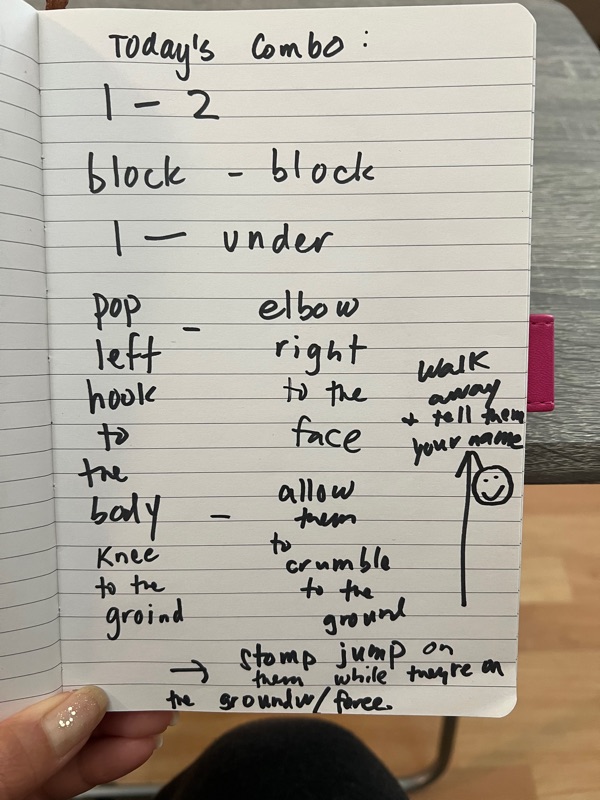 Today's Combo:
1 - 2
block - block
1 - under
pop
left
hook
to
the
body
- elbow
right
to the
face
Knee
to the
groind
- allow
them
to
crumble
to the
ground
→ stomp jump on
them while they're on
the ground w/ force.
walk
away
+ tell them
your name